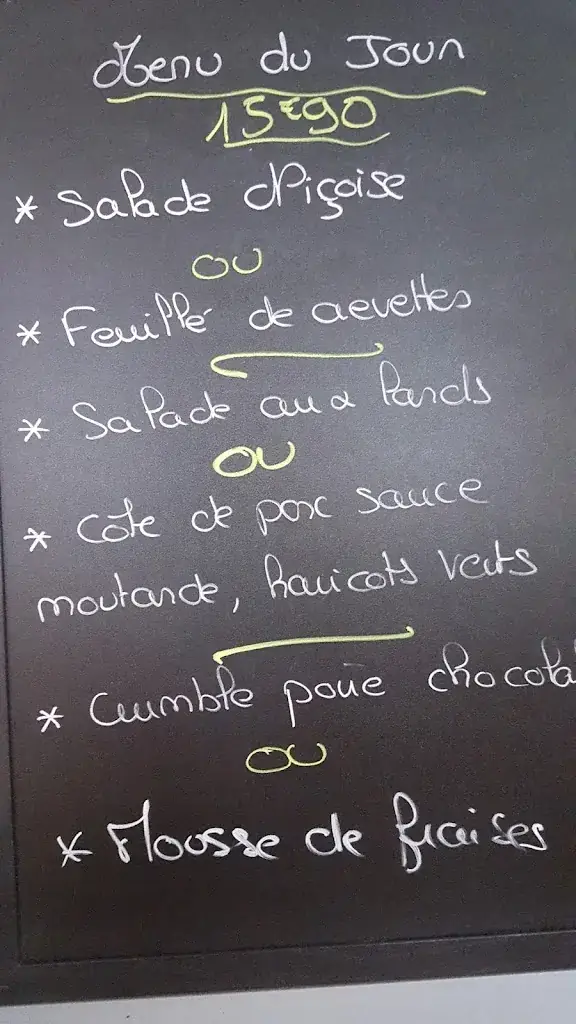 Menu du Jour
15€90
* Salade Niçoise
ou
* Feuillé de crevettes
* Salade aux lards
ou
* Cote de porc sauce
moutarde, haricots verts
* Crumble poire chocola
ou
* Mousse de fraises